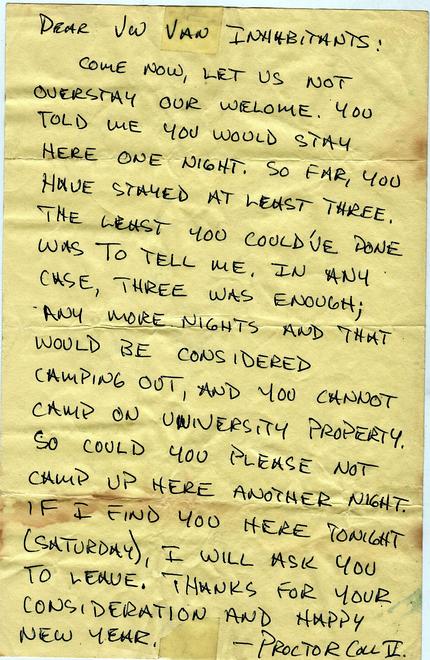 DEAR VW VAN INHABITANTS:
COME NOW, LET US NOT
OVERSTAY OUR WELOME. YOU
TOLD ME YOU WOULD STAY
HERE ONE NIGHT. SO FAR, YOU
HAVE STAYED AT LEAST THREE.
THE LEAST YOU COULD'VE DONE
WAS TO TELL ME. IN ANY
CASE, THREE WAS ENOUGH;
ANY MORE NIGHTS AND THAT
WOULD BE CONSIDERED
CAMPING OUT, AND YOU CANNOT
CAMP ON UNIVERSITY PROPERTY.
SO COULD YOU PLEASE NOT
CAMP UP HERE ANOTHER NIGHT.
IF I FIND YOU HERE TONIGHT
(SATURDAY), I WILL ASK YOU
TO LEAVE. THANKS FOR YOUR
CONSIDERATION AND HAPPY
NEW YEAR. — PROCTOR COLL II.